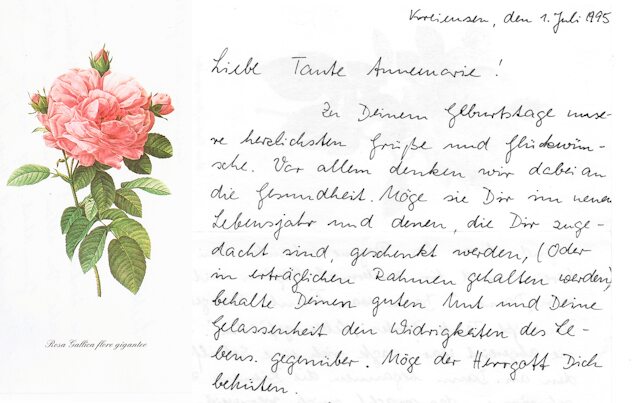 Kreiensen, den 1. Juli 1995
Liebe Tante Annemarie!
Zu Deinem Geburtstage unse-
re herzlichsten Grüße und Glückwün-
sche. Vor allem denken wir dabei an
die Gesundheit. Möge sie Dir im neuen
Lebensjahr und denen, die Dir zuge-
dacht sind, geschenkt werden, (Oder
in erträglichen Rahmen gehalten werden)
behalte Deinen guten Mut und Deine
Gelassenheit den Widrigkeiten des Le-
bens. gegenüber. Möge der Herrgott Dich
behüten.
Rosa Gallica flore giganteo